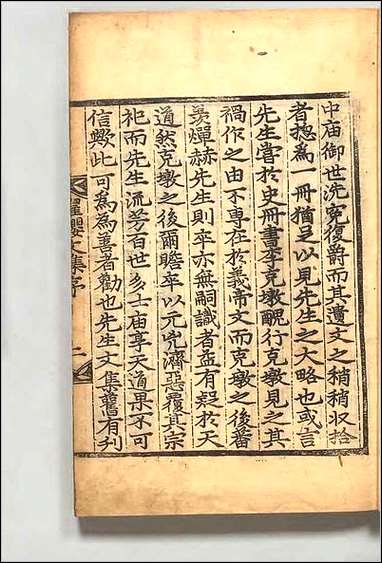 中庙御世洗寃復爵而其遺文之稍稍収拾
者揔為一冊猶足以見先生之大略也或言
先生嘗於史冊書李克墩醜行克墩見之其
禍作之由不專在於義帝文而克墩之後蕃
羡燀赫先生則卒亦無嗣識者益有疑於天
道然克墩之後爾瞻卒以元兇濟惡覆其宗
祀而先生流芳百世多士庙享天道果不可
信歟此可為為善者勸也先生文集舊有刋
濯纓文集序 二